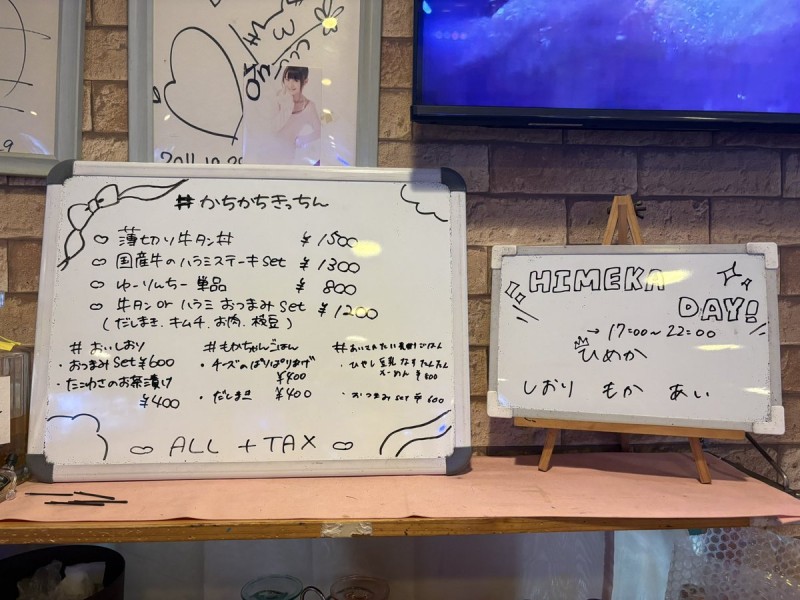 #かちかちきっちん
薄切り牛タン丼 ¥1500
国産牛のハラミステーキSet ¥1300
ゆーりんちー単品 ¥800
牛タン or ハラミ おつまみSet ¥1200
(だしまき、キムチ、お肉、枝豆)
#おいしおり
・おつまみSet ¥600
・たこわさのお茶漬け
¥400
#もかちゃんごはん
・チーズのぱりぱりあげ
¥400
・だしまき ¥400
ひやし豆乳
たんたん
¥800
・おつまみset ¥600
ALL +TAX
HIMEKA
DAY!
→17:00~22:00
ひめか
しおり もか あい